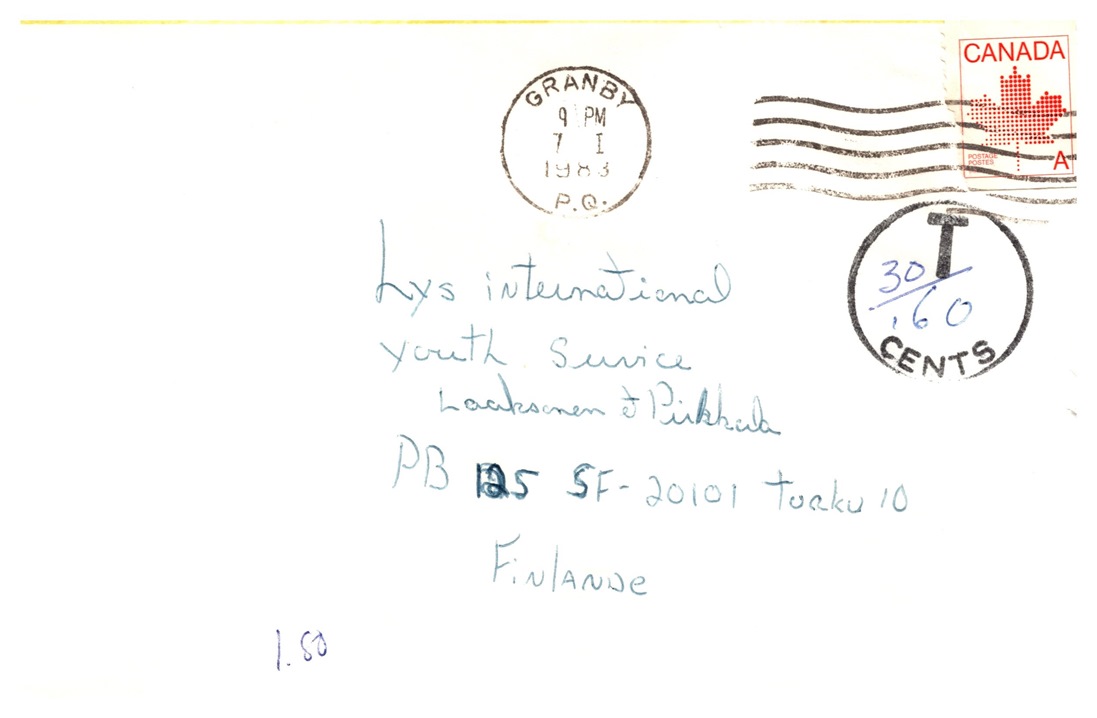 CANADA
POSTAGE
POSTES
A
GRANBY
9 PM
7 I
1983
P.Q.
T
30/.60
CENTS
Lys international
Youth Service
Laaksonen & Pirkkala
PB 125 SF-20101 Turku 10
Finlande
1.80